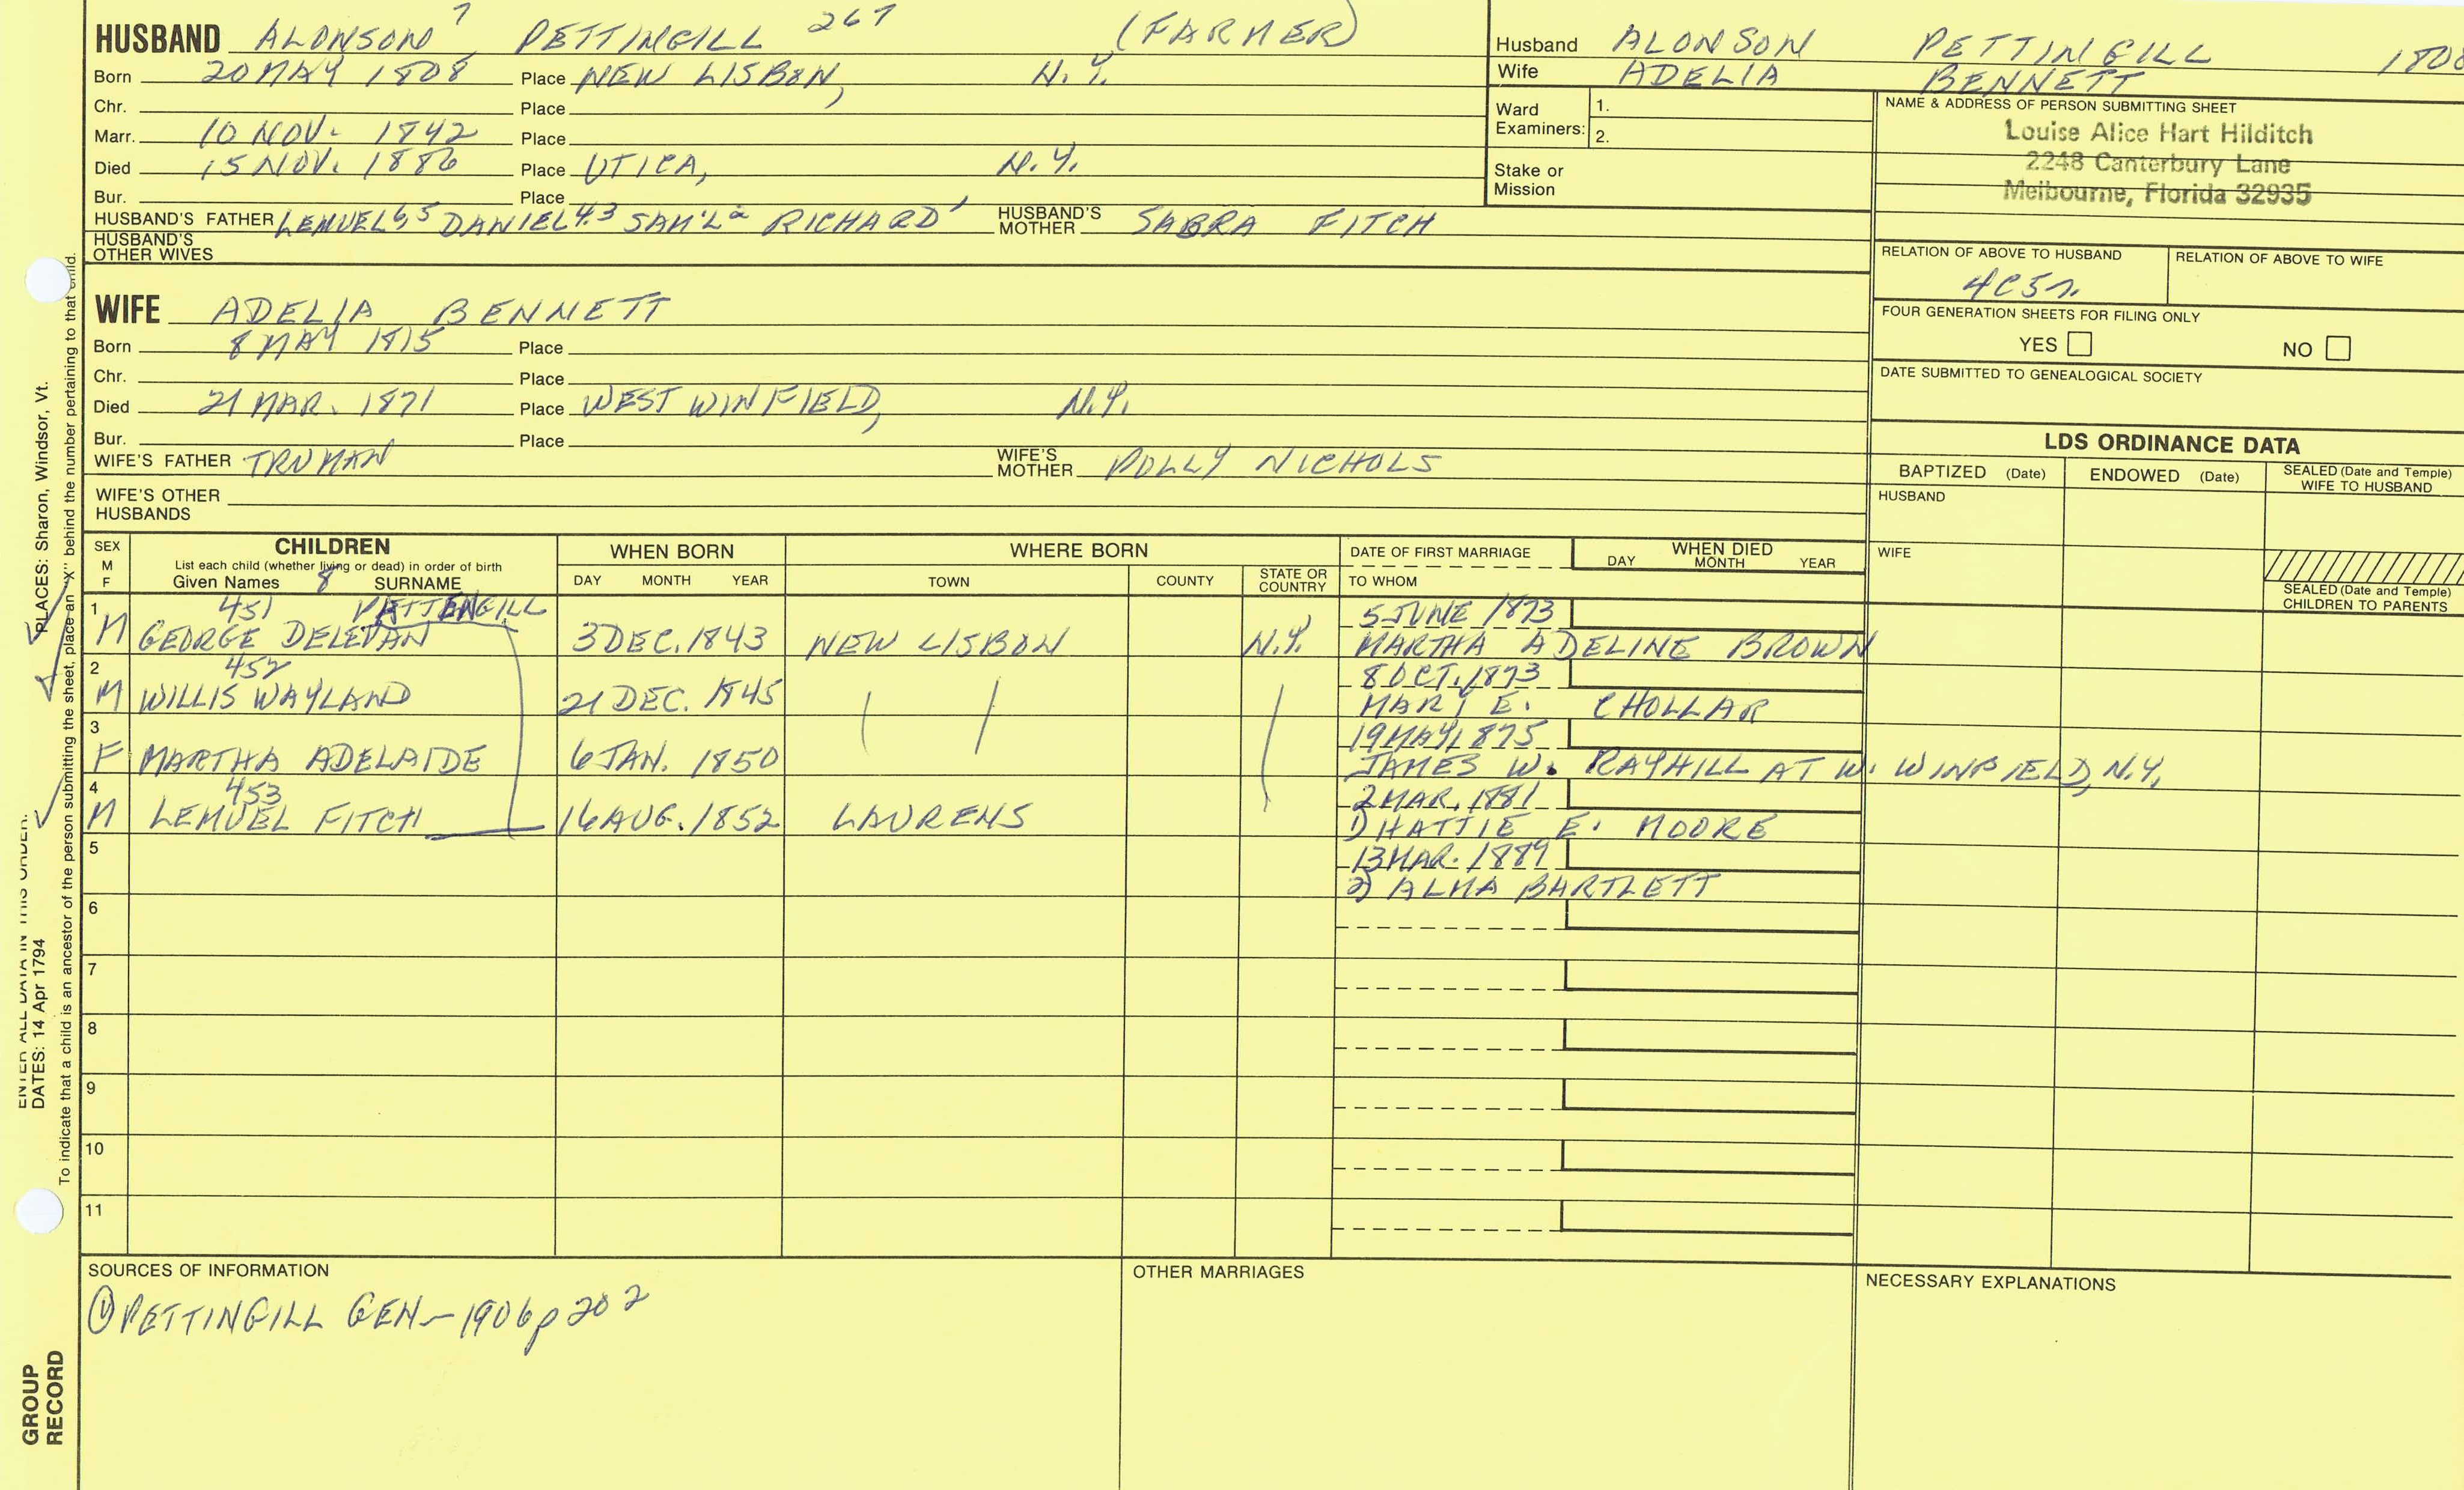 HUSBAND ALONSON 7 PETTINGILL 267 (FARMER)
Born 20 MAY 1808 Place NEW LISBON, N.Y.
Chr. Place
Marr. 10 NOV. 1842 Place
Died 15 NOV. 1886 Place UTICA, N.Y.
Bur. Place
HUSBAND'S FATHER LEMUEL 6,5 DANIEL 4,3 SAM'L 2 RICHARD 1 HUSBAND'S MOTHER SABRA FITCH
HUSBAND'S OTHER WIVES
WIFE ADELIA BENNETT
Born 8 MAY 1815 Place
Chr. Place
Died 21 MAR. 1871 Place WEST WINFIELD, N.Y.
Bur. Place
WIFE'S FATHER TRUMAN WIFE'S MOTHER POLLY NICHOLS
WIFE'S OTHER HUSBANDS
Husband ALONSON PETTINGILL 1808
Wife ADELIA BENNETT
Ward Examiners: 1.
2.
Stake or Mission
NAME & ADDRESS OF PERSON SUBMITTING SHEET
Louise Alice Hart Hilditch
2248 Canterbury Lane
Melbourne, Florida 32935
RELATION OF ABOVE TO HUSBAND RELATION OF ABOVE TO WIFE
4C5r.
FOUR GENERATION SHEETS FOR FILING ONLY
YES NO
DATE SUBMITTED TO GENEALOGICAL SOCIETY
LDS ORDINANCE DATA
BAPTIZED (Date) ENDOWED (Date) SEALED (Date and Temple) WIFE TO HUSBAND
HUSBAND
WIFE
SEALED (Date and Temple) CHILDREN TO PARENTS
SEX M F CHILDREN WHEN BORN WHERE BORN DATE OF FIRST MARRIAGE WHEN DIED
List each child (whether living or dead) in order of birth
Given Names 8 SURNAME DAY MONTH YEAR TOWN COUNTY STATE OR COUNTRY TO WHOM DAY MONTH YEAR
1 451 PETTENGILL 5 JUNE 1873
M GEORGE DELEVAN 3 DEC. 1843 NEW LISBON N.Y. MARTHA ADELINE BROWN
2 452 8 OCT. 1873
M WILLIS WAYLAND 21 DEC. 1845 MARY E. CHOLLAR
3 19 MAY 1875
F MARTHA ADELAIDE 6 JAN. 1850 JAMES W. RAYHILL AT W. WINFIELD, N.Y.
4 453 2 MAR. 1881
M LEMUEL FITCH 16 AUG. 1852 LAURENS 1) HATTIE E. MOORE
5 13 MAR. 1889
2) ALMA BARTLETT
6
7
8
9
10
11
SOURCES OF INFORMATION
① PETTINGILL GEN - 1906 p 202
OTHER MARRIAGES
NECESSARY EXPLANATIONS
PLACES: Sharon, Windsor, Vt.
To indicate that a child is an ancestor of the person submitting the sheet, place an "X" behind the number pertaining to that child.
ENTER ALL DATA IN THIS ORDER:
DATES: 14 Apr 1794
GROUP RECORD